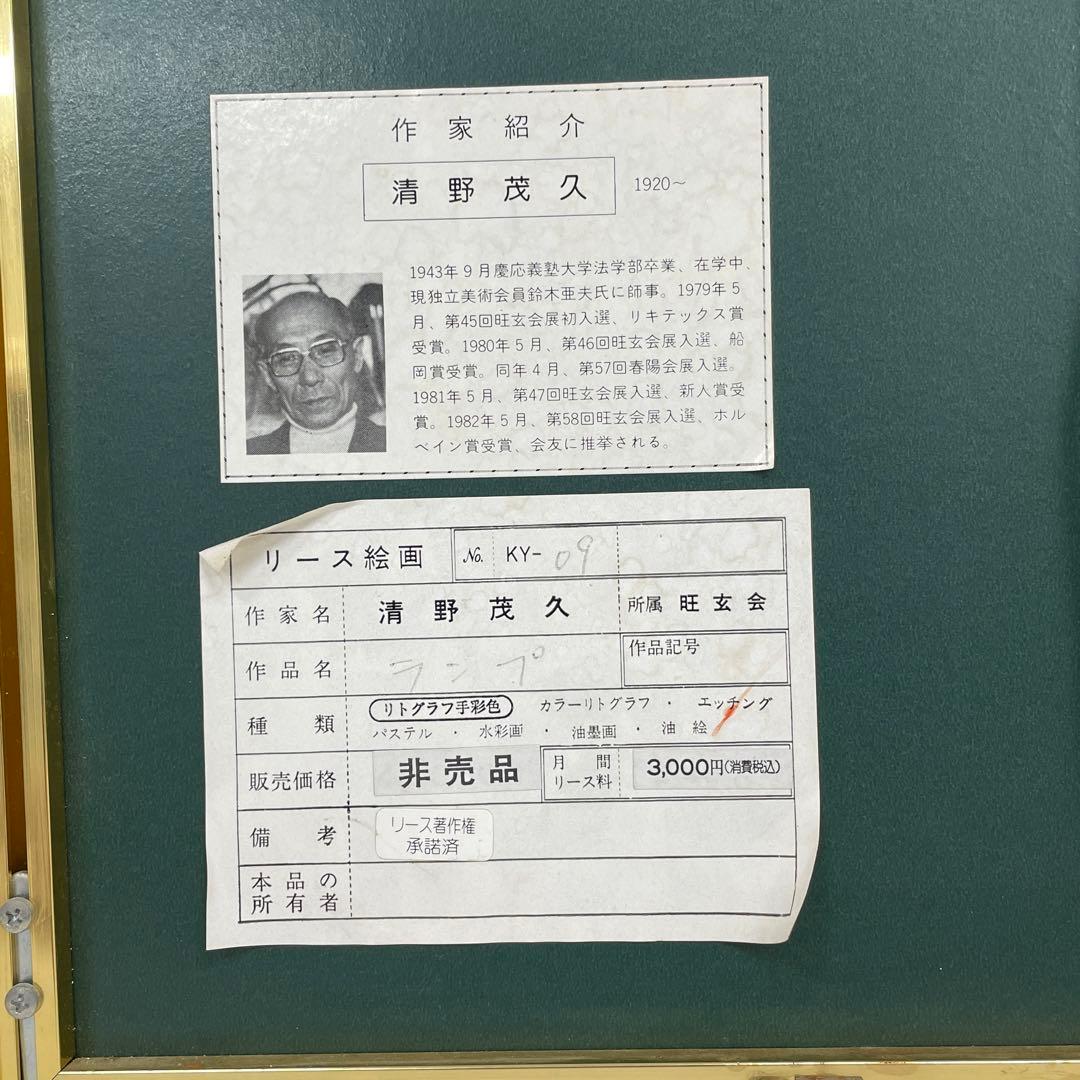 作家紹介
清野茂久 1920～
1943年9月慶応義塾大学法学部卒業、在学中、
現独立美術会員鈴木亜夫氏に師事。1979年5
月、第45回旺玄会展初入選、リキテックス賞
受賞。1980年5月、第46回旺玄会展入選、船
岡賞受賞。同年4月、第57回春陽会展入選。
1981年5月、第47回旺玄会展入選、新人賞受
賞。1982年5月、第58回旺玄会展入選、ホル
ベイン賞受賞、会友に推挙される。
リース絵画 No. KY-09
作家名 清野茂久 所属 旺玄会
作品名 ランプ 作品記号
種類 リトグラフ手彩色 カラーリトグラフ ・ エッチング
パステル ・ 水彩画 ・ 油墨画 ・ 油絵
販売価格 非売品 月間リース料 3,000円(消費税込)
備考 リース著作権
承諾済
本品の
所有者